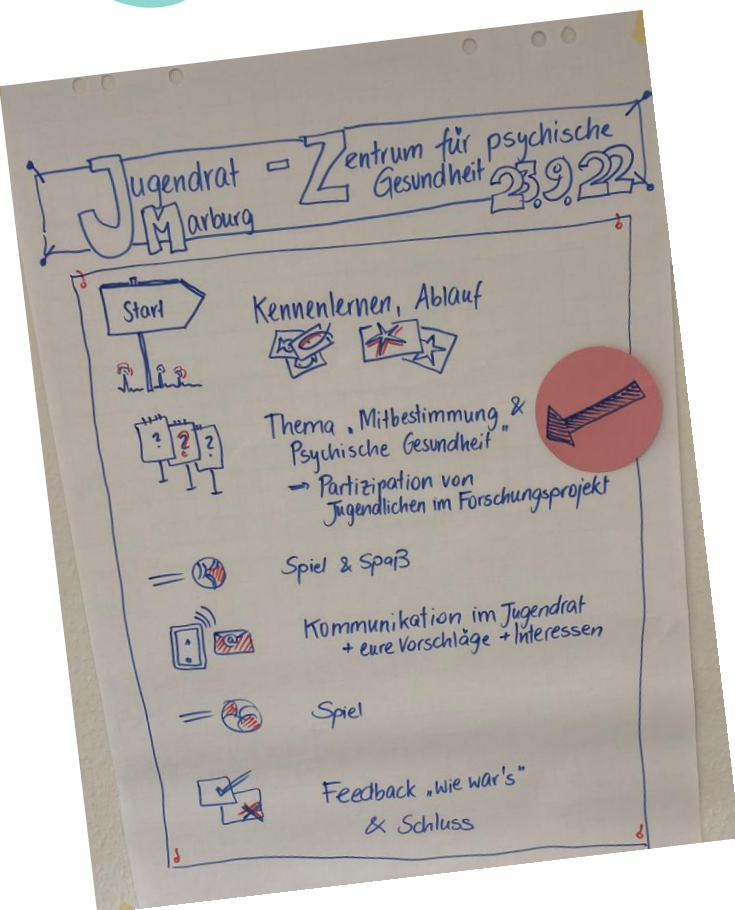 Jugendrat - Zentrum für psychische
Marburg Gesundheit 23.9.22
Start
Kennenlernen, Ablauf
? ? ?
Thema „Mitbestimmung &
Psychische Gesundheit"
→ Partizipation von
Jugendlichen im Forschungsprojekt
Spiel & Spaß
@
Kommunikation im Jugendrat
+ eure Vorschläge + Interessen
Spiel
Feedback „wie war's"
& Schluss